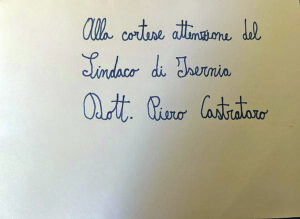 Alla cortese attenzione del
Sindaco di Isernia
Dott. Piero Castrataro